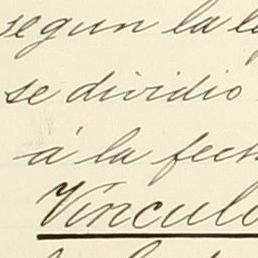 segun la l
se dividio
á la fech
Vinculo